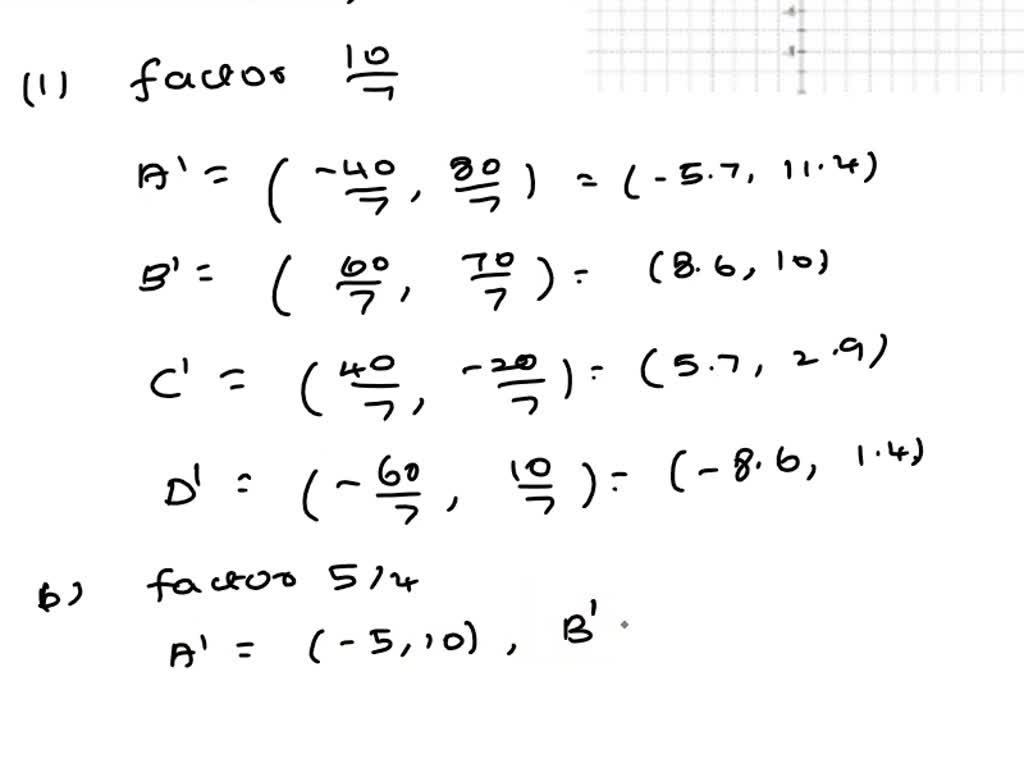 (1) factor 10/7
A' = (-40/7, 80/7) = (-5.7, 11.4)
B' = (60/7, 70/7) = (8.6, 10)
C' = (40/7, -20/7) = (5.7, 2.9)
D' = (-60/7, 10/7) = (-8.6, 1.4)
b) factor 5/4
A' = (-5, 10), B'